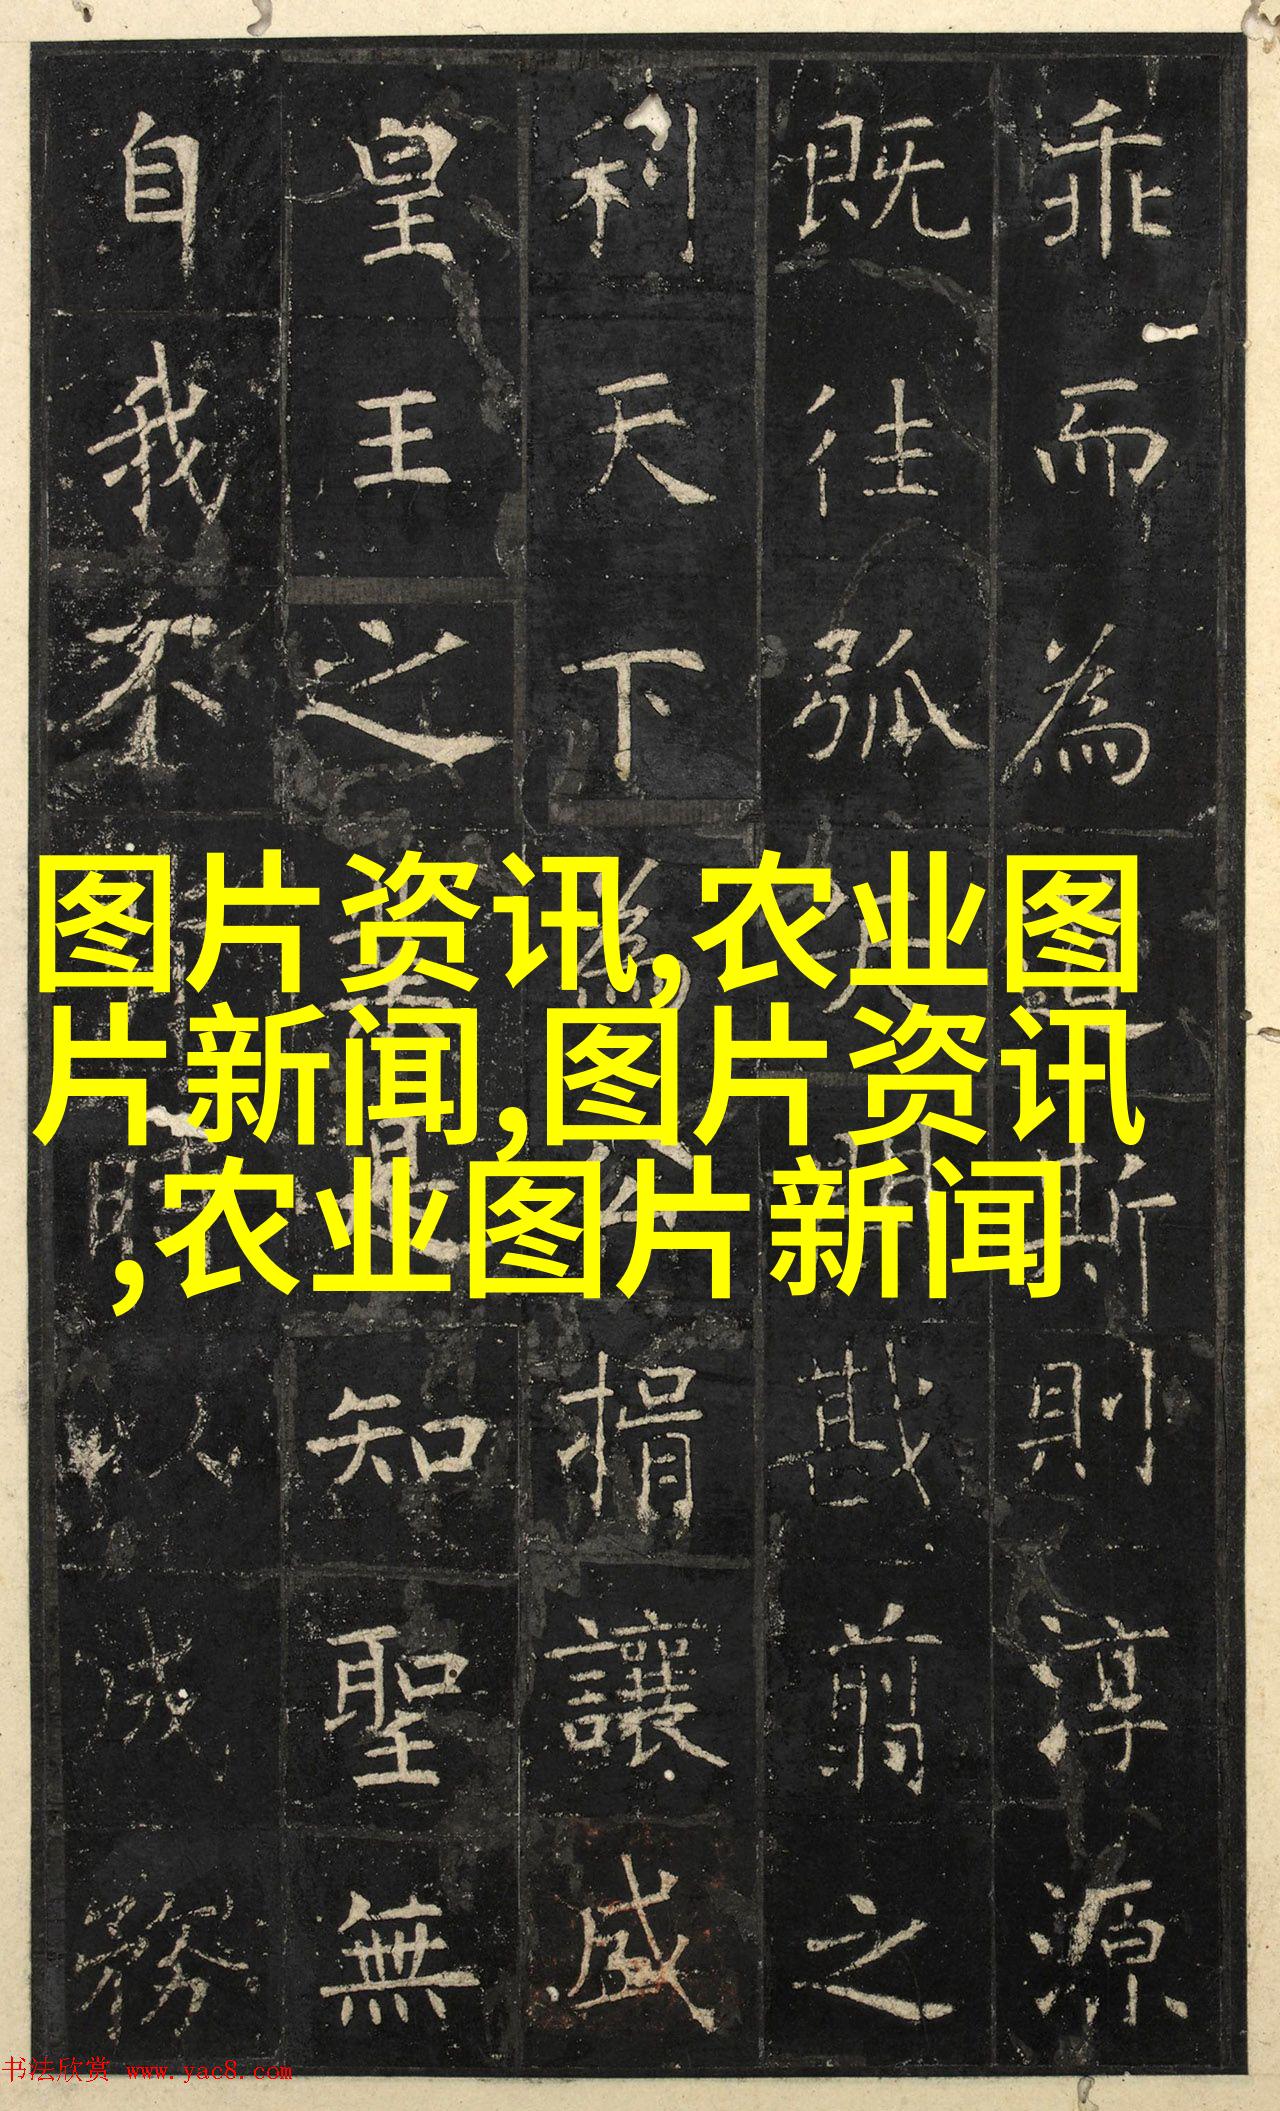 乖而為斯則淳源
既往弧戡翦之
利天下為公揖讓盛
皇王之是知聖無
自我不時以成務
图片资讯,农业图
片新闻,图片资讯
,农业图片新闻
书法欣赏 www.yac8.com